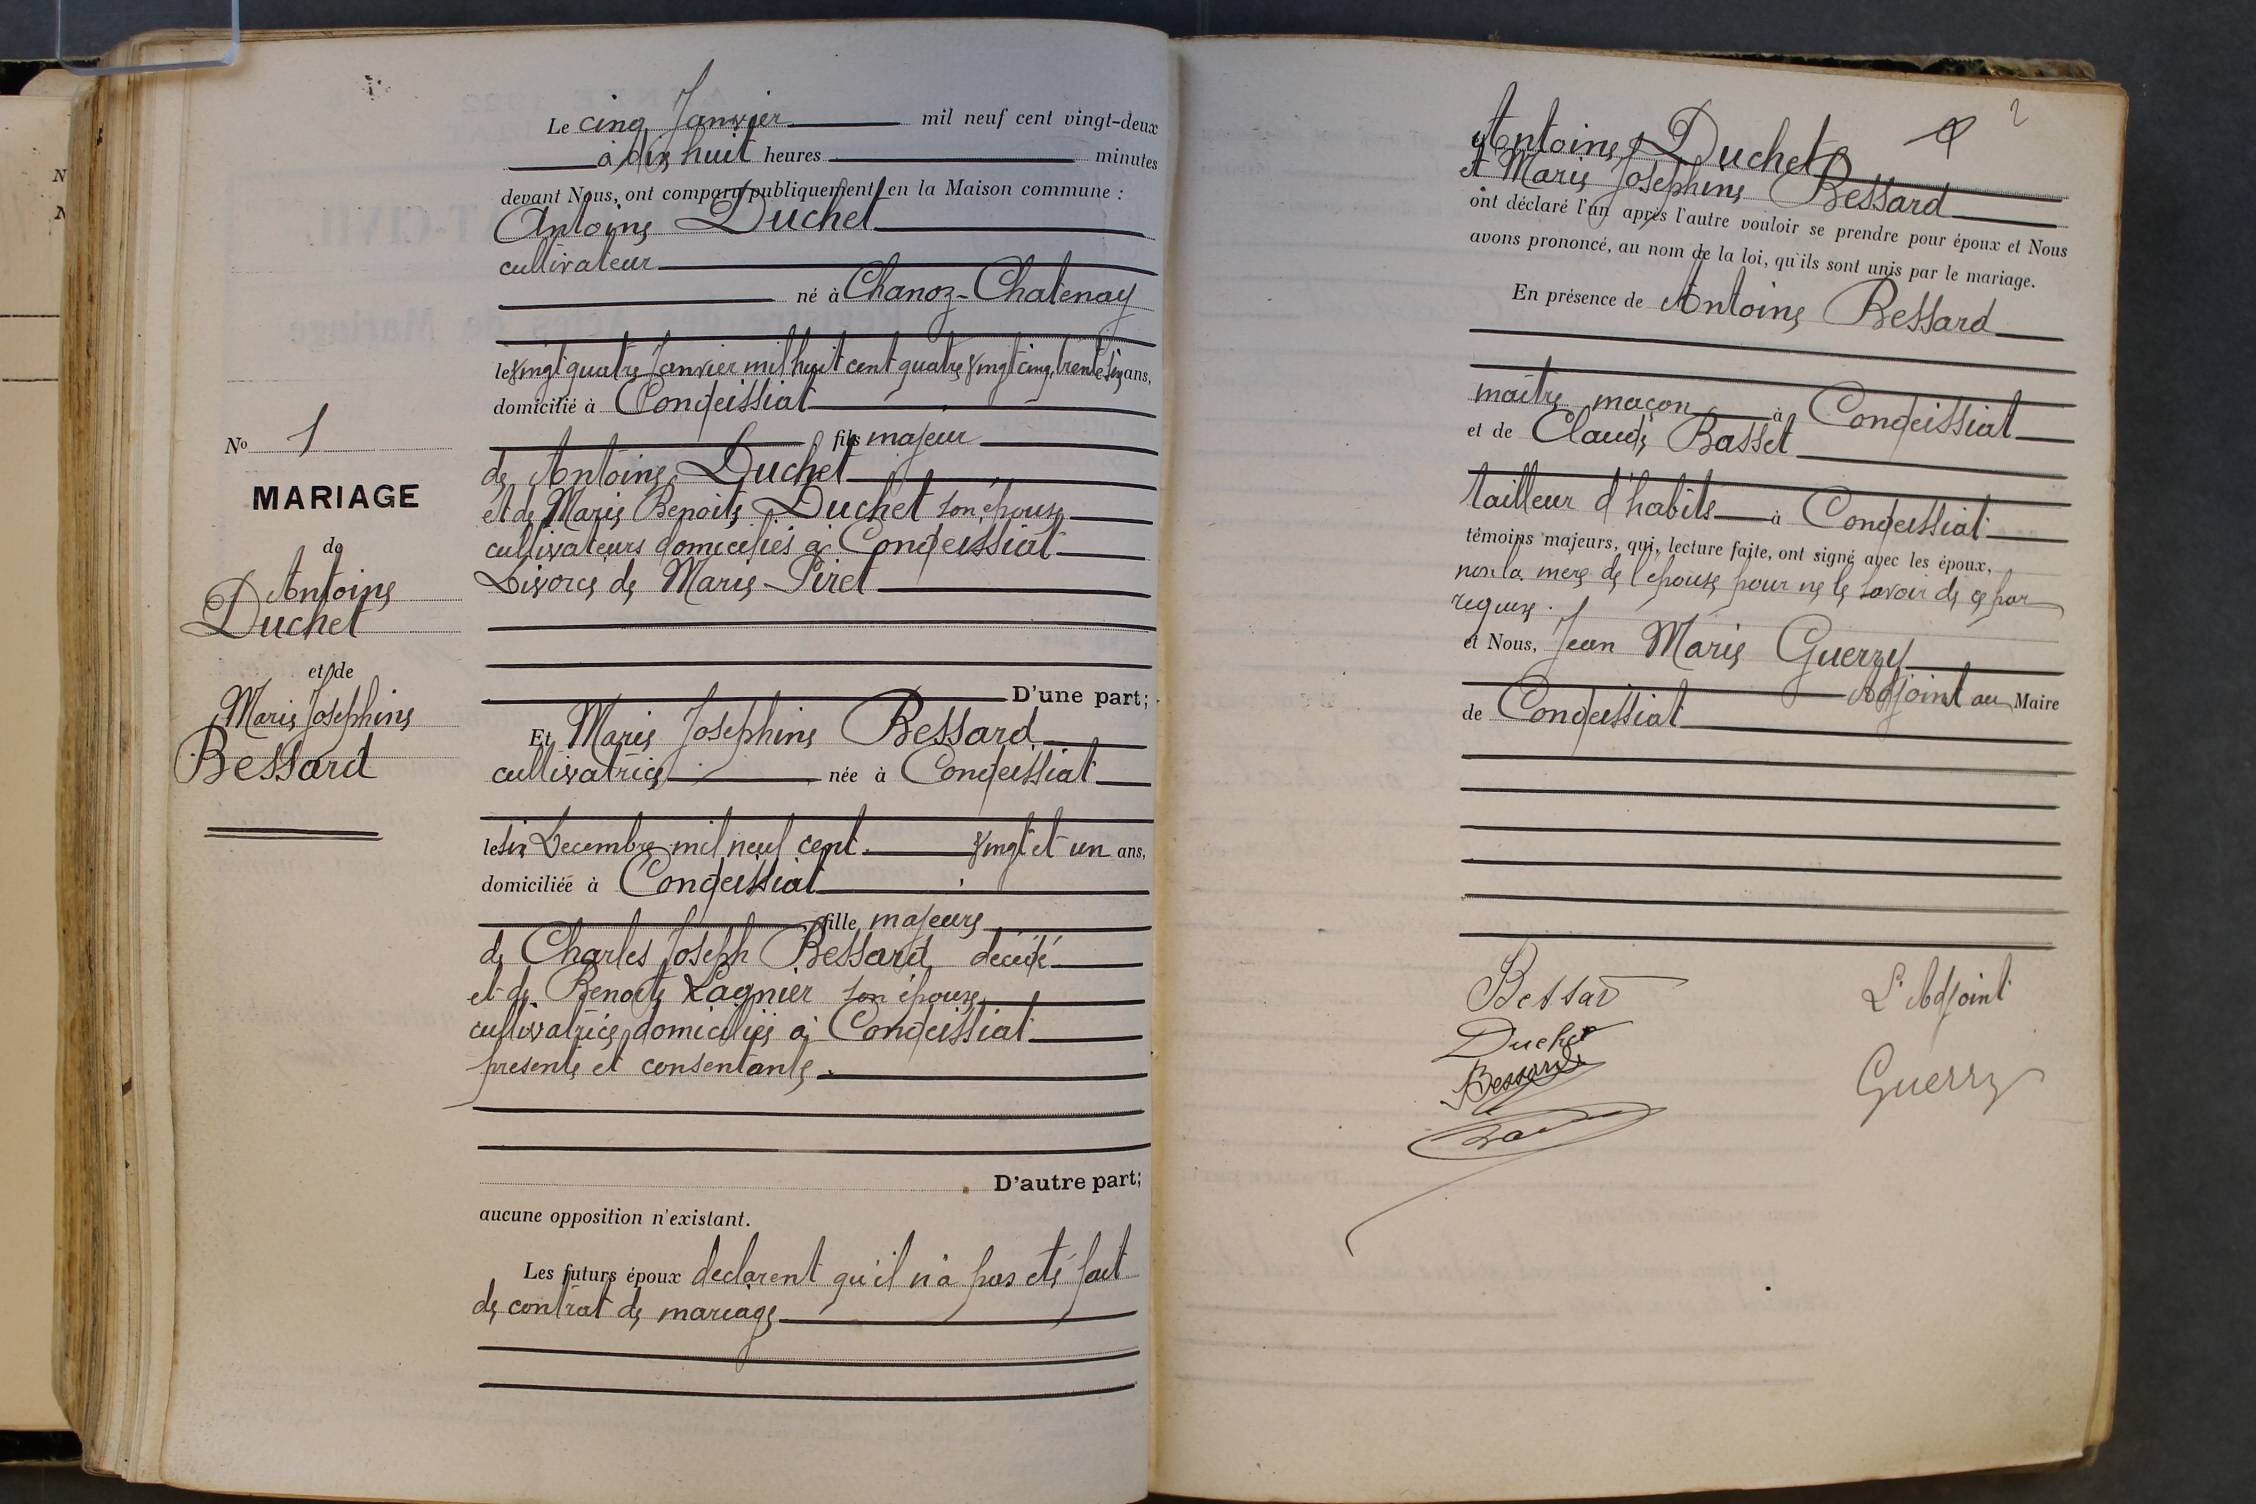 Le cinq Janvier mil neuf cent vingt-deux
à dix huit heures minutes
devant Nous, ont comparu publiquement en la Maison commune :
Antoine Duchet
cultivateur
né à Chanoz-Chatenay
le vingt quatre Janvier mil huit cent quatre vingt cinq, trente six ans,
domicilié à Condeissiat
fils majeur
de Antoine Duchet
et de Marie Benoite Duchet son épouse
cultivateurs domiciliés à Condeissiat
Divorcé de Marie Piret
D'une part;
No 1
MARIAGE
de
Antoine
Duchet
et de
Marie Josephine
Bessard
Et Marie Josephine Bessard
cultivatrice née à Condeissiat
le six Decembre mil neuf cent vingt et un ans,
domiciliée à Condeissiat
fille majeure
de Charles Joseph Bessard décédé
et de Benoite Lagnier son épouse
cultivatrice domiciliée à Condeissiat
presente et consentante.
D'autre part;
aucune opposition n'existant.
Les futurs époux declarent qu'il n'a pas été fait
de contrat de mariage
2
Antoine Duchet
et Marie Josephine Bessard
ont déclaré l'un après l'autre vouloir se prendre pour époux et Nous
avons prononcé, au nom de la loi, qu'ils sont unis par le mariage.
En présence de Antoine Bessard
maître maçon à Condeissiat
et de Claude Basset
tailleur d'habits à Condeissiat
témoins majeurs, qui, lecture faite, ont signé avec les époux,
non la mere de l'epouse pour ne le savoir de ce par
requise.
et Nous, Jean Marie Guerry
Adjoint au Maire
de Condeissiat
Bessard
L'Adjoint
Duchet
Bessard
Guerry